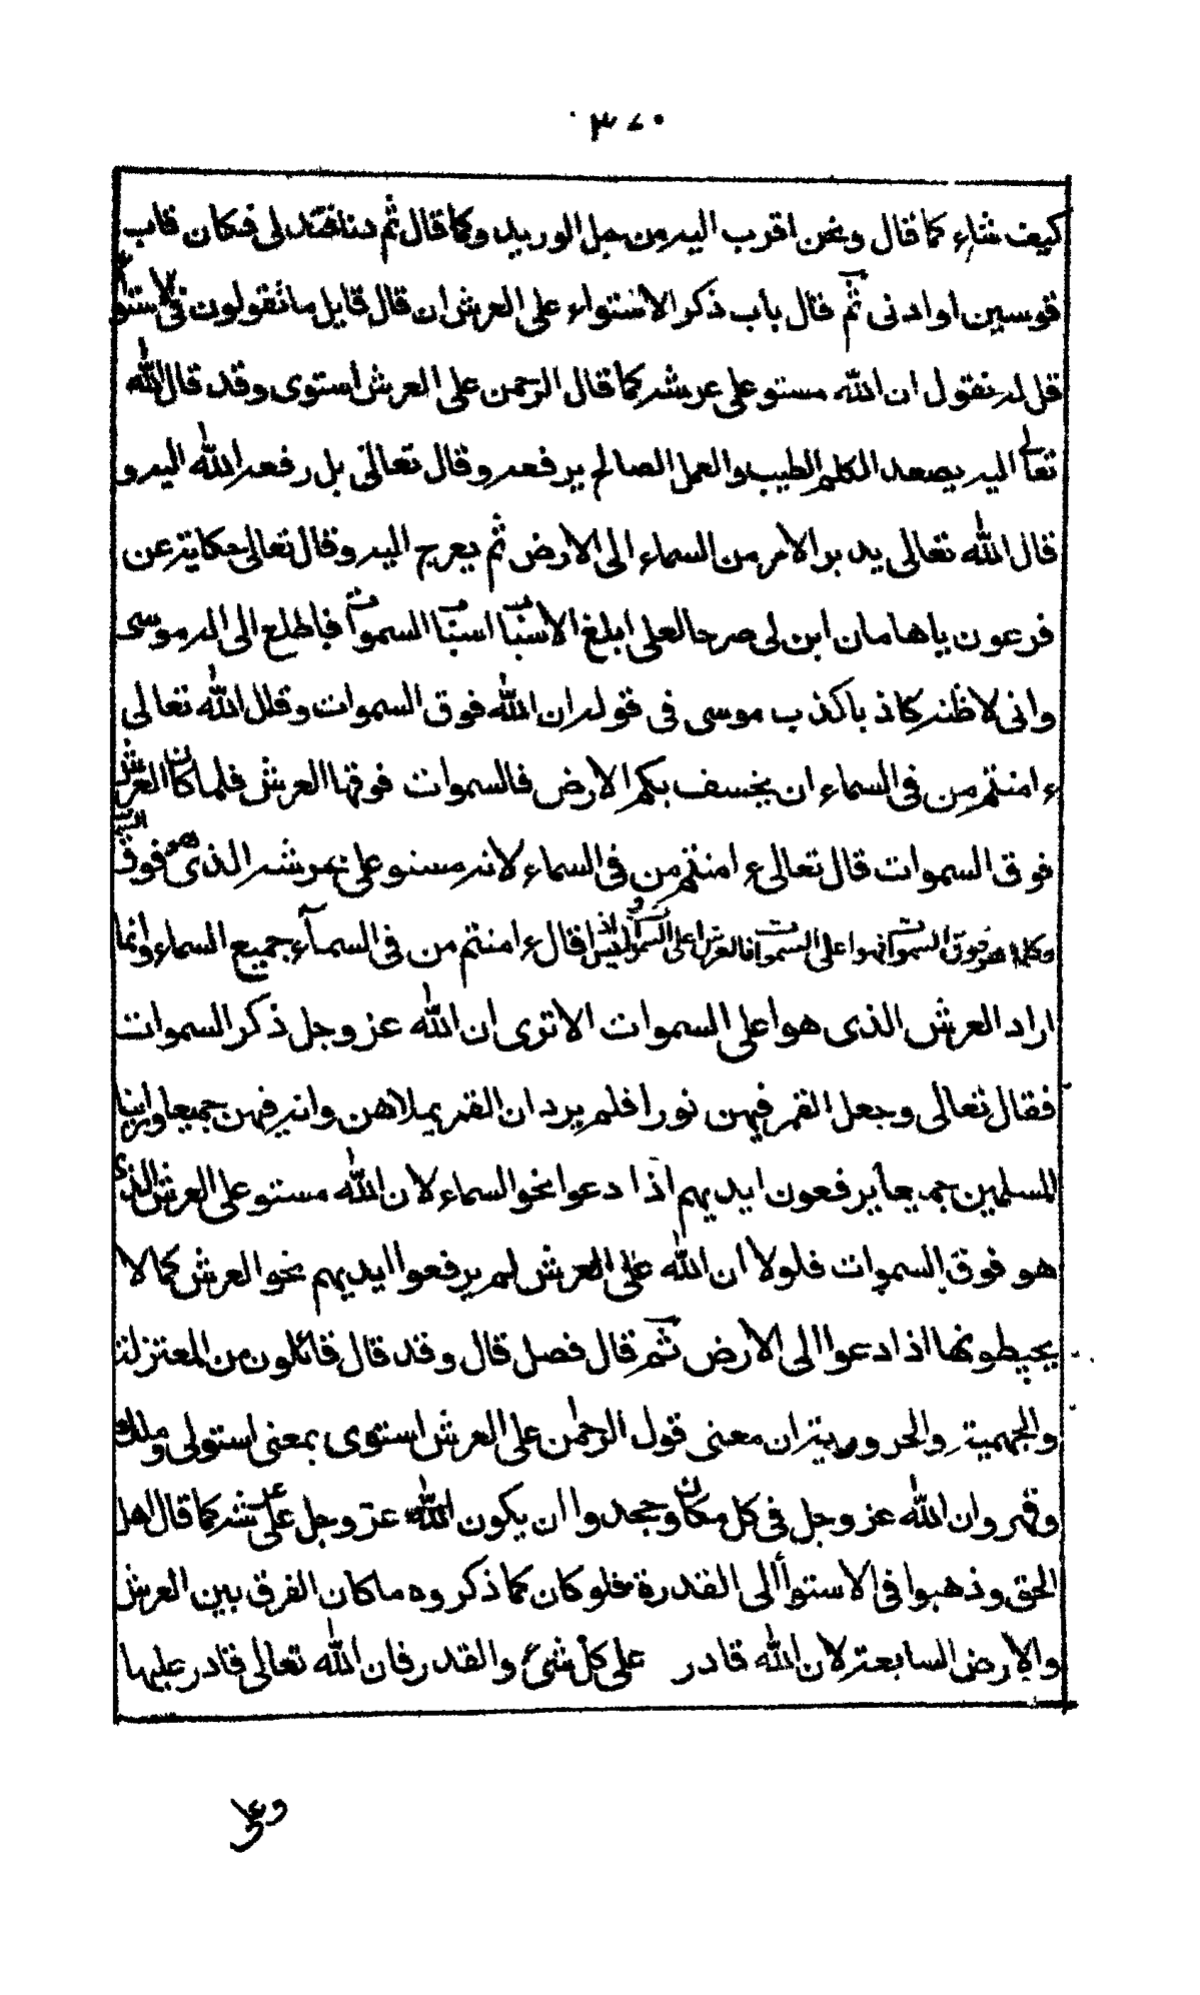 ٣٧٠
كيف شاء كما قال ونحن اقرب اليه من حبل الوريد وكما قال ثم دنا فتدلى فكان قاب
قوسين او ادنى ثم قال باب ذكر الاستواء على العرش ان قال قايل ما تقولون فى الاستواء
قل له نقول ان الله مستو على عرشه كما قال الرحمن على العرش استوى وقد قال الله
تعالى اليه يصعد الكلم الطيب والعمل الصالح يرفعه وقال تعالى بل رفعه الله اليه و
قال الله تعالى يدبر الامر من السماء الى الارض ثم يعرج اليه وقال تعالى حكاية عن
فرعون ياهامان ابن لى صرحا لعلى ابلغ الاسباب اسباب السموات فاطلع الى اله موسى
وانى لاظنه كاذبا كذب موسى فى قوله ان الله فوق السموات وقال الله تعالى
ء امنتم من فى السماء ان يخسف بكم الارض فالسموات فوقها العرش فلما كان العرش
فوق السموات قال تعالى ء امنتم من فى السماء لانه مستو على عرشه الذى هو فوق السموات
وكلما هو فوق السموات فهو اعلى السموات فالعرش اعلى السموات وليس اذا قال ء امنتم من فى السمآء جميع السماء وانما
اراد العرش الذى هو اعلى السموات الا ترى ان الله عز وجل ذكر السموات
فقال تعالى وجعل القمر فيهن نورا فلم يرد ان القمر يملاهن وانه فيهن جميعا وراينا
المسلمين جميعا يرفعون ايديهم اذا دعوا نحو السماء لان الله مستو على العرش الذى
هو فوق السموات فلولا ان الله على العرش لم يرفعوا ايديهم نحو العرش كما لا
يحيطونها اذا دعوا الى الارض ثم قال فصل قال وقد قال قائلون من المعتزلة
والجهمية والحرورية ان معنى قول الرحمن على العرش استوى بمعنى استولى وملك
وقهر وان الله عز وجل فى كل مكان وجحدوا ان يكون الله عز وجل على عرشه كما قال اهل
الحق وذهبوا فى الاستواء الى القدرة فلو كان كما ذكروه ما كان الفرق بين العرش
والارض السابعة لان الله قادر على كل شئ والقدر فان الله تعالى قادر عليها
وعلى